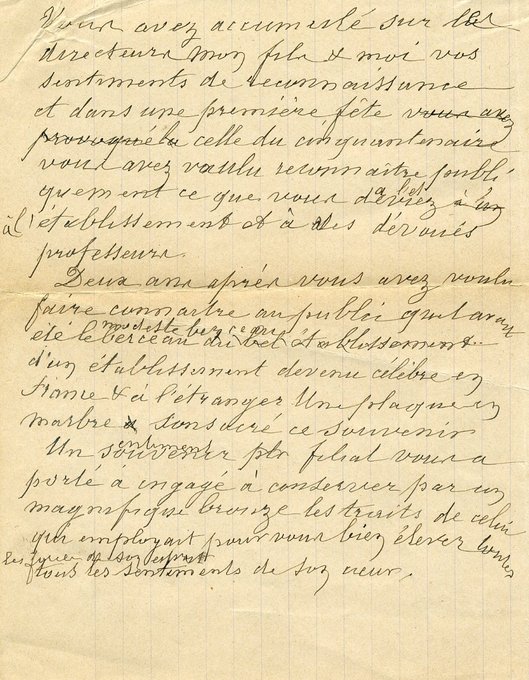 Vous avez accumulé sur les
directeurs mon fils & moi vos
sentiments de reconnaissance
et dans une première fête vous avez
provoqué la celle du cinquantenaire
vous avez voulu reconnaitre publi
quement ce que vous deviez à un
à l'établissement et à ses dévoués
professeurs.
Deux ans après vous avez voulu
faire connaitre au public quel avait
été le modeste berceau
berceau du bel établissement
d'un établissement devenu célèbre en
France & à l'étranger Une plaque en
marbre & consacré ce souvenir
Un sentiment
souvenir plr filial vous a
porté à engagé à conserver par un
magnifique bronze les traits de celui
qui employait pour vous bien élever toutes
les de son esprit
tous les sentiments de son cœur.